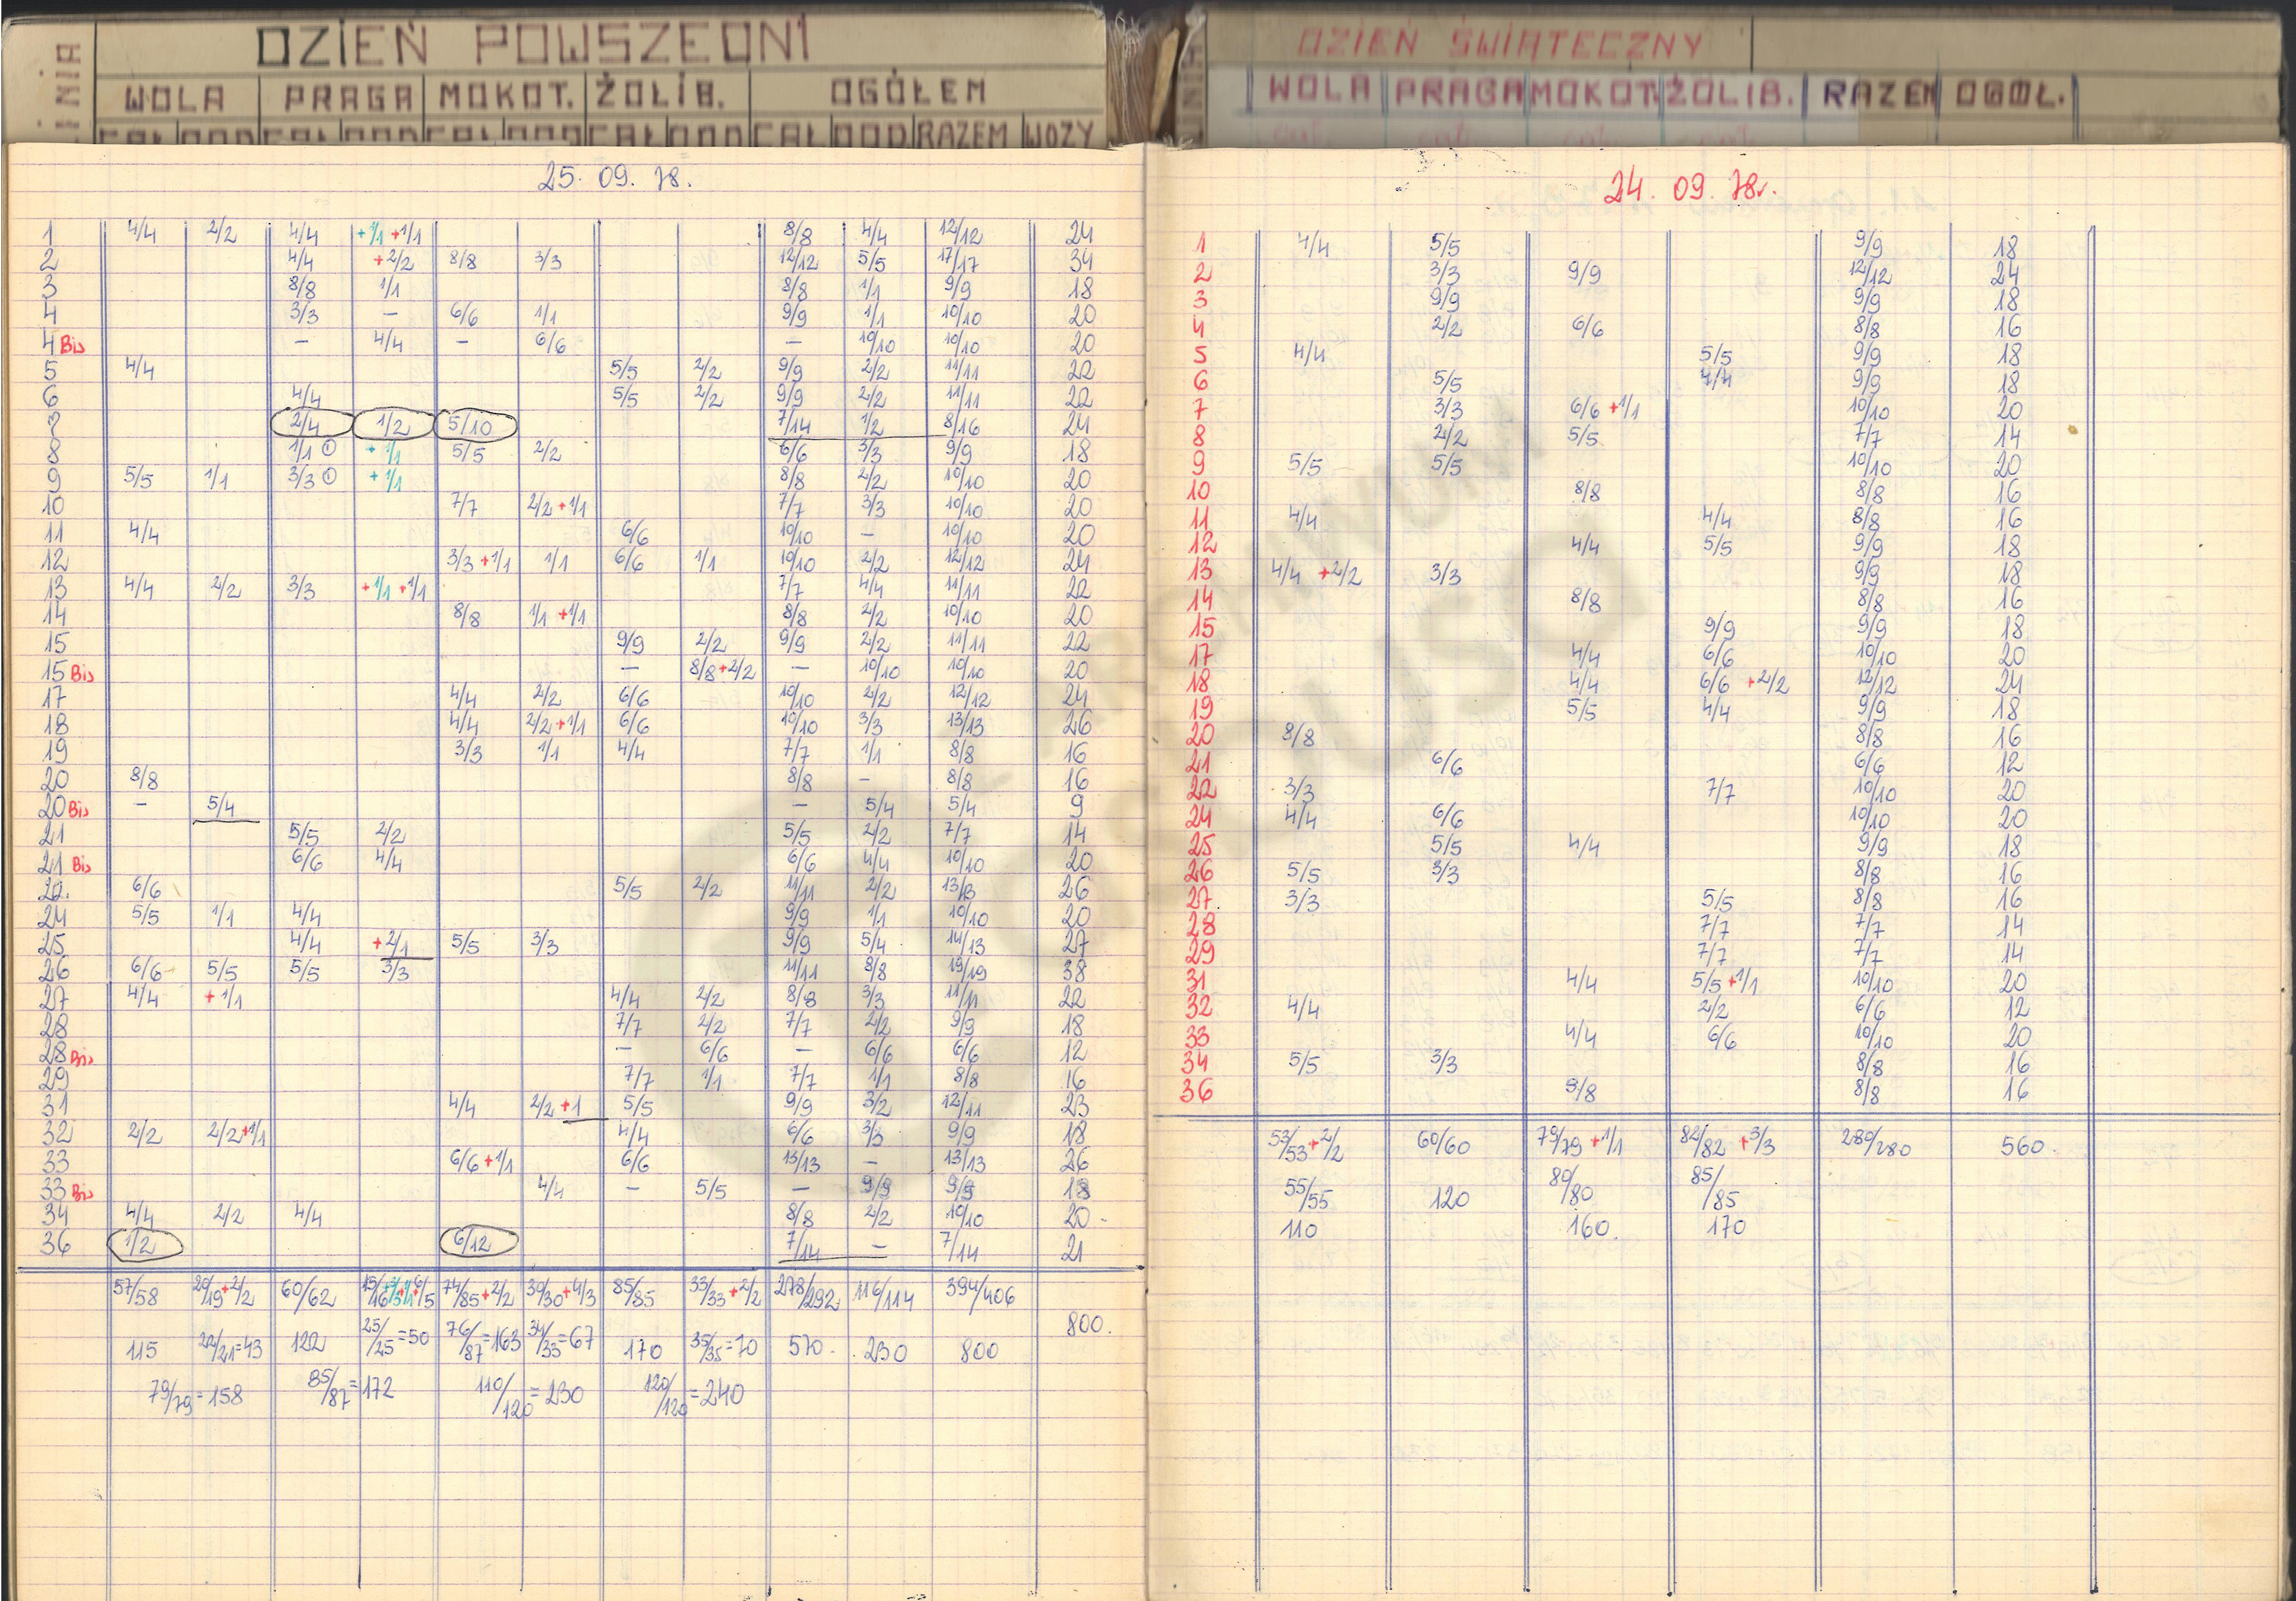 LINIA DZIEŃ POWSZEDNI
WOLA PRAGA MOKOT. ŻOLIB. OGÓŁEM
CAŁ DOD CAŁ DOD CAŁ DOD CAŁ DOD CAŁ DOD RAZEM WOZY
25. 09. 78.
1 4/4 2/2 4/4 +1/1 +1/1 8/8 4/4 12/12 24
2 4/4 +2/2 8/8 3/3 12/12 5/5 17/17 34
3 8/8 1/1 8/8 1/1 9/9 18
4 3/3 – 6/6 1/1 9/9 1/1 10/10 20
4 Bis – 4/4 – 6/6 – 10/10 10/10 20
5 4/4 5/5 2/2 9/9 2/2 11/11 22
6 4/4 5/5 2/2 9/9 2/2 11/11 22
7 2/4 1/2 5/10 7/14 1/2 8/16 24
8 1/1 ① +1/1 5/5 2/2 6/6 3/3 9/9 18
9 5/5 1/1 3/3 ① +1/1 8/8 2/2 10/10 20
10 7/7 2/2+1/1 7/7 3/3 10/10 20
11 4/4 6/6 10/10 – 10/10 20
12 3/3+1/1 1/1 6/6 1/1 10/10 2/2 12/12 24
13 4/4 2/2 3/3 +1/1 +1/1 7/7 4/4 11/11 22
14 8/8 1/1+1/1 8/8 2/2 10/10 20
15 9/9 2/2 9/9 2/2 11/11 22
15 Bis – 8/8+2/2 – 10/10 10/10 20
17 4/4 2/2 6/6 10/10 2/2 12/12 24
18 4/4 2/2+1/1 6/6 10/10 3/3 13/13 26
19 3/3 1/1 4/4 7/7 1/1 8/8 16
20 8/8 8/8 – 8/8 16
20 Bis – 5/4 – 5/4 5/4 9
21 5/5 2/2 5/5 2/2 7/7 14
21 Bis 6/6 4/4 6/6 4/4 10/10 20
22. 6/6 5/5 2/2 11/11 2/2 13/13 26
24 5/5 1/1 4/4 9/9 1/1 10/10 20
25 4/4 +2/1 5/5 3/3 9/9 5/4 14/13 27
26 6/6 5/5 5/5 3/3 11/11 8/8 19/19 38
27 4/4 +1/1 4/4 2/2 8/8 3/3 11/11 22
28 7/7 2/2 7/7 2/2 9/9 18
28 Bis – 6/6 – 6/6 6/6 12
29 7/7 1/1 7/7 1/1 8/8 16
31 4/4 2/2+1 5/5 9/9 3/2 12/11 23
32 2/2 2/2+1/1 4/4 6/6 3/3 9/9 18
33 6/6+1/1 6/6 13/13 – 13/13 26
33 Bis 4/4 – 5/5 – 9/9 9/9 18
34 4/4 2/2 4/4 8/8 2/2 10/10 20
36 1/2 6/12 7/14 – 7/14 21
57/58 20/19+2/2 60/62 74/85+2/2 30/30+4/3 85/85 33/33+2/2 278/292 116/114 394/406
800.
115 22/21=43 122 25/25=50 76/87=163 34/33=67 170 35/35=70 570. 230 800
79/79=158 85/87=172 110/120=230 120/120=240
LINIA DZIEŃ ŚWIĄTECZNY
WOLA PRAGA MOKOT. ŻOLIB. RAZEM OGÓŁ.
24. 09. 78r.
1 4/4 5/5 9/9 18
2 3/3 9/9 12/12 24
3 9/9 9/9 18
4 2/2 6/6 8/8 16
5 4/4 5/5 9/9 18
6 5/5 4/4 9/9 18
7 3/3 6/6+1/1 10/10 20
8 2/2 5/5 7/7 14
9 5/5 5/5 10/10 20
10 8/8 8/8 16
11 4/4 4/4 8/8 16
12 4/4 5/5 9/9 18
13 4/4 +2/2 3/3 9/9 18
14 8/8 8/8 16
15 9/9 9/9 18
17 4/4 6/6 10/10 20
18 4/4 6/6 +2/2 12/12 24
19 5/5 4/4 9/9 18
20 8/8 8/8 16
21 6/6 6/6 12
22 3/3 7/7 10/10 20
24 4/4 6/6 10/10 20
25 5/5 4/4 9/9 18
26 5/5 3/3 8/8 16
27. 3/3 5/5 8/8 16
28 7/7 7/7 14
29 7/7 7/7 14
31 4/4 5/5+1/1 10/10 20
32 4/4 2/2 6/6 12
33 4/4 6/6 10/10 20
34 5/5 3/3 8/8 16
36 8/8 8/8 16
53/53+2/2 60/60 79/79 +1/1 82/82 +3/3 280/280 560.
55/55 120 80/80 85/85
110 160. 170